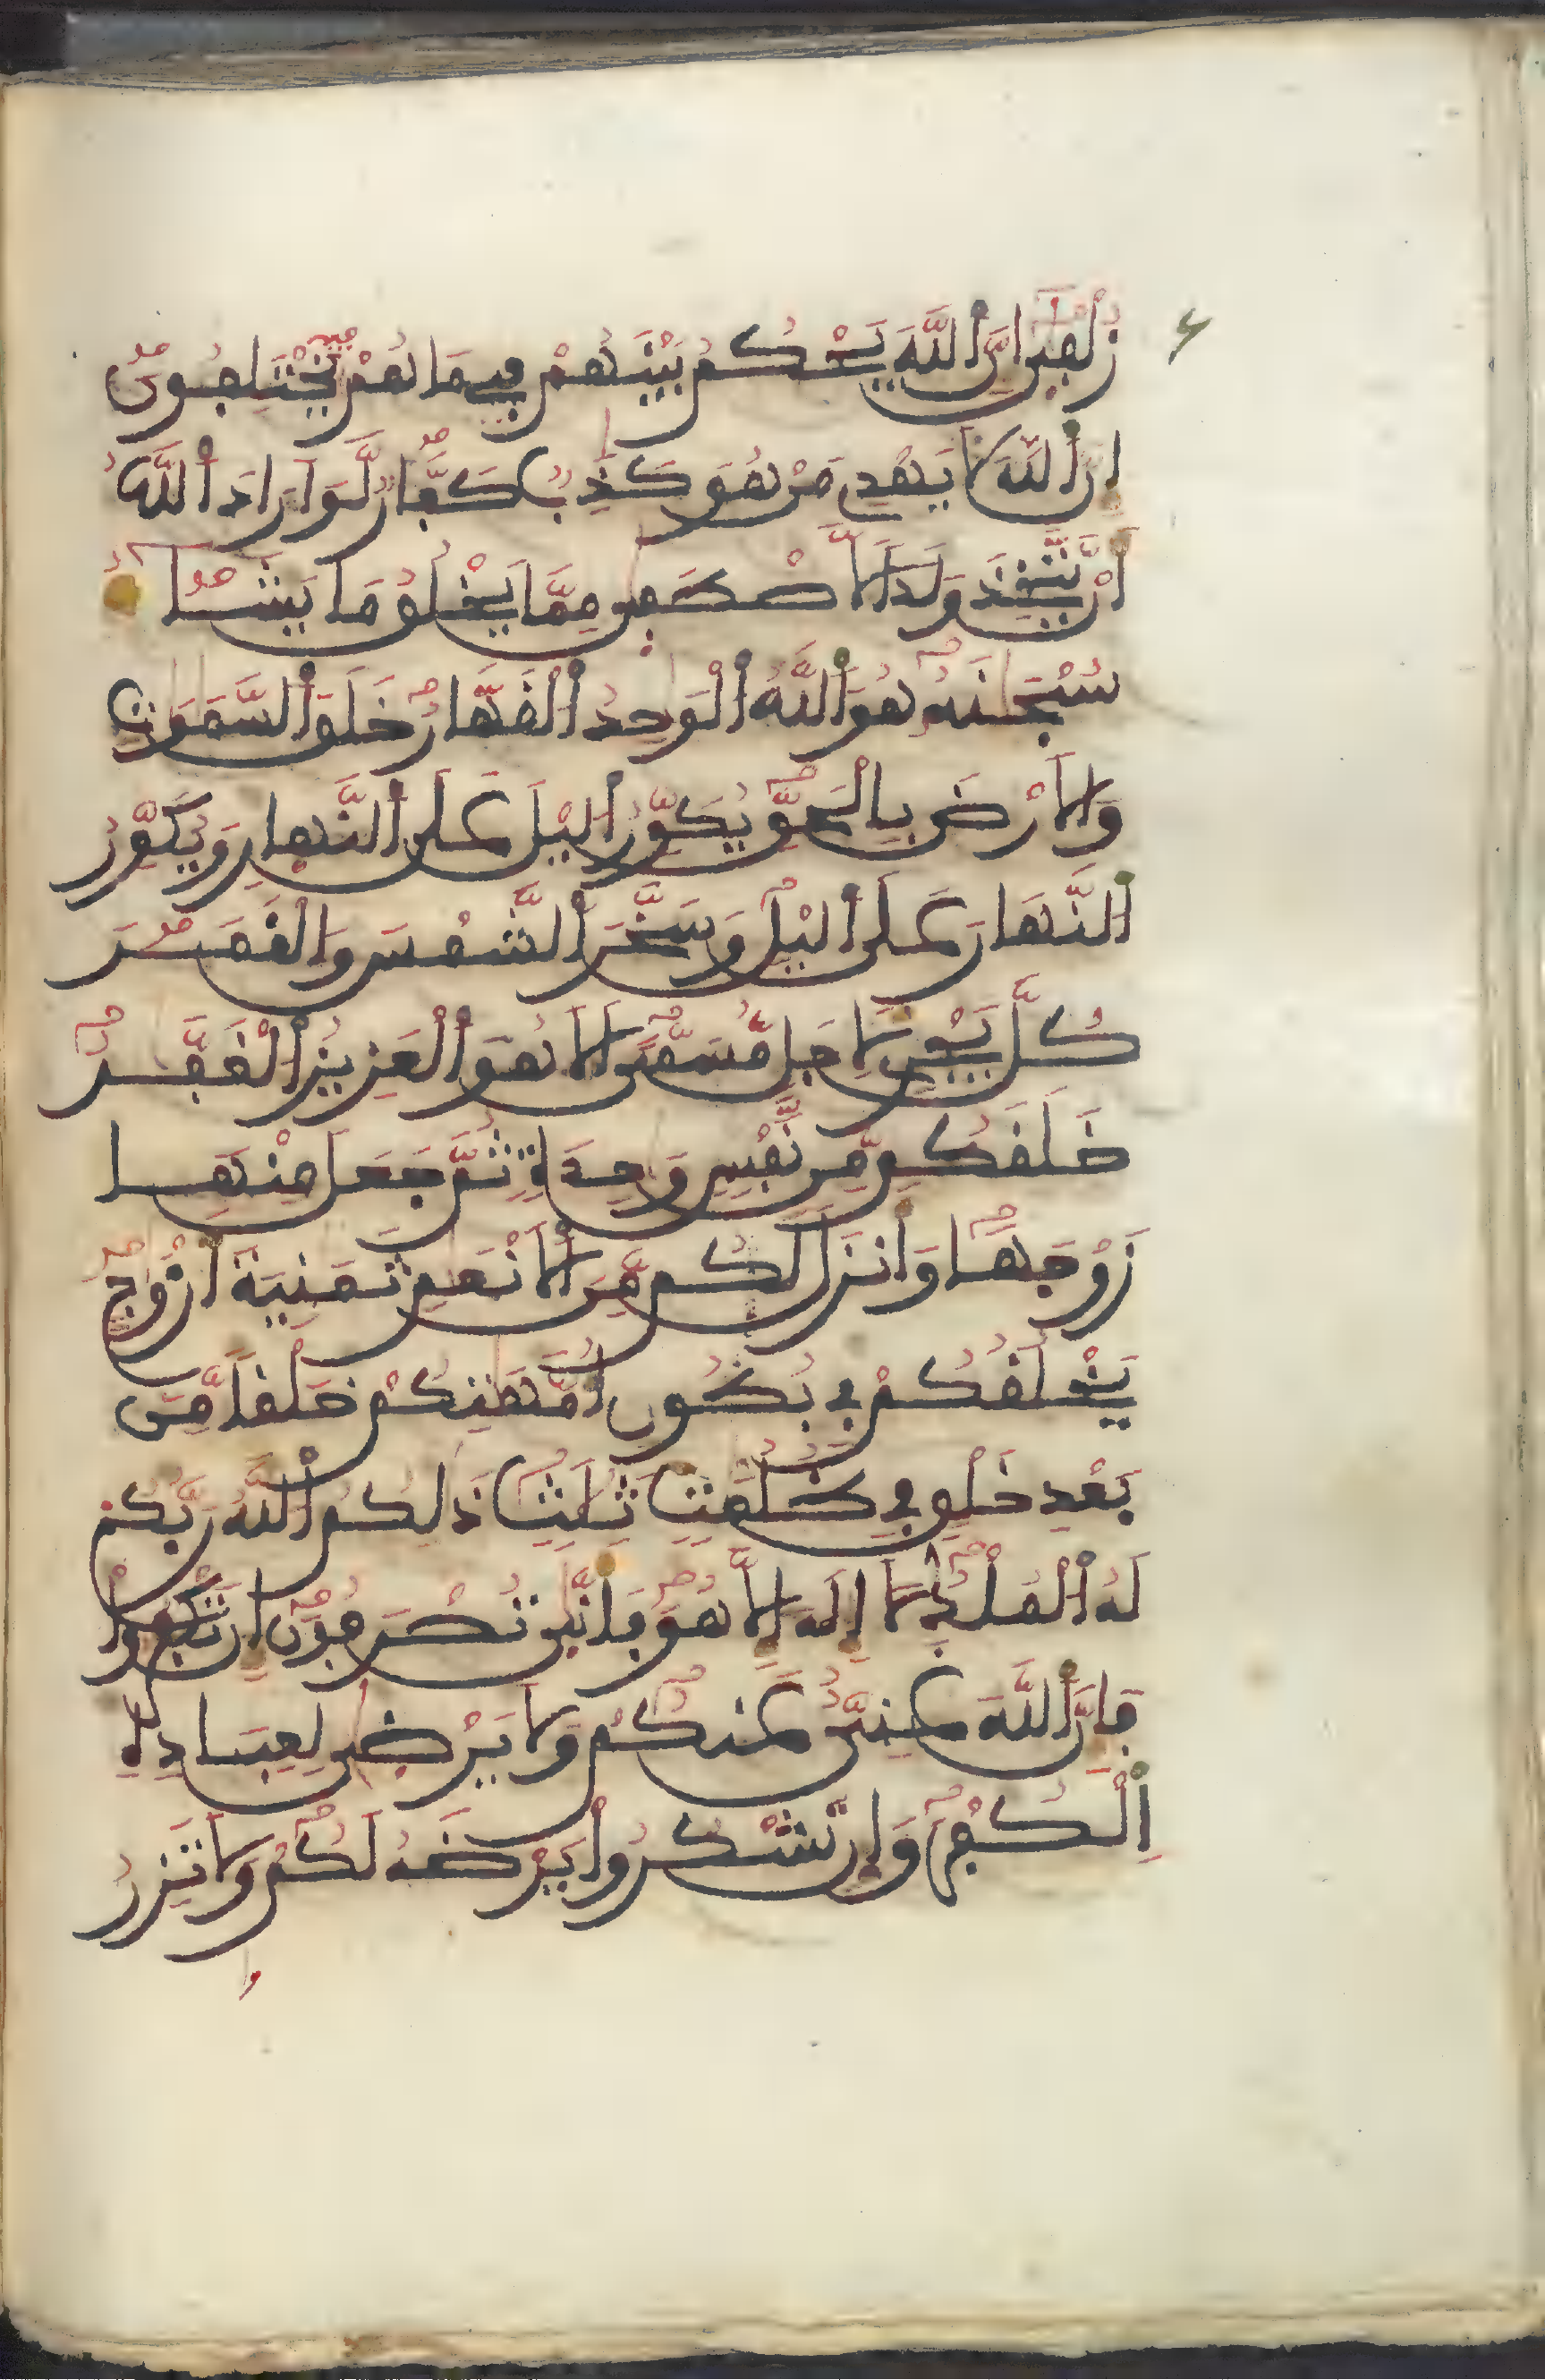 زُلْفَىٰ إِنَّ اَللَّهَ يَحْكُمُ بَيْنَهُمْ فِي مَا هُمْ فِيهِ يَخْتَلِفُونَ
إِنَّ اَللَّهَ لَا يَهْدِے مَنْ هُوَ كَٰذِبٌ كَفَّارٌ لَّوَ اَرَادَ اَللَّهُ
أَنْ يَّتَّخِذَ وَلَداً لَّاصْطَفَىٰ مِمَّا يَخْلُقُ مَا يَشَآءُ
سُبْحَٰنَهُ هُوَ اَللَّهُ اُلْوَٰحِدُ اُلْقَهَّارُ خَلَقَ اَلسَّمَٰوَٰتِ
وَالَارْضَ بِالْحَقِّ يُكَوِّرُ اُليْلَ عَلَى اَلنَّهَارِ وَيُكَوِّرُ
اُلنَّهَارَ عَلَى اَليْلِ وَسَخَّرَ اَلشَّمْسَ وَالْقَمَرَ
كُلٌّ يَجْرِے لِأَجَلٍ مُّسَمًّى أَلَا هُوَ اَلْعَزِيزُ اُلْغَفَّٰرُ
خَلَقَكُم مِّن نَّفْسٍ وَٰحِدَةٍ ثُمَّ جَعَلَ مِنْهَا
زَوْجَهَا وَأَنزَلَ لَكُم مِّنَ اَلَانْعَٰمِ ثَمَٰنِيَةَ أَزْوَٰجٍ
يَخْلُقُكُمْ فِے بُطُونِ أُمَّهَٰتِكُمْ خَلْقاً مِّنۢ
بَعْدِ خَلْقٍ فِے ظُلُمَٰتٍ ثَلَٰثٍ ذَٰلِكُمُ اُللَّهُ رَبُّكُمْ
لَهُ اُلْمُلْكُ لَا إِلَٰهَ إِلَّا هُوَ فَأَنّٰىٰ تُصْرَفُونَ إِن تَكْفُرُواْ
فَإِنَّ اَللَّهَ غَنِيٌّ عَنكُمْ وَلَا يَرْضَىٰ لِعِبَادِهِ
اِلْكُفْرَ وَإِن تَشْكُرُواْ يَرْضَهُ لَكُمْ وَلَا تَزِرُ